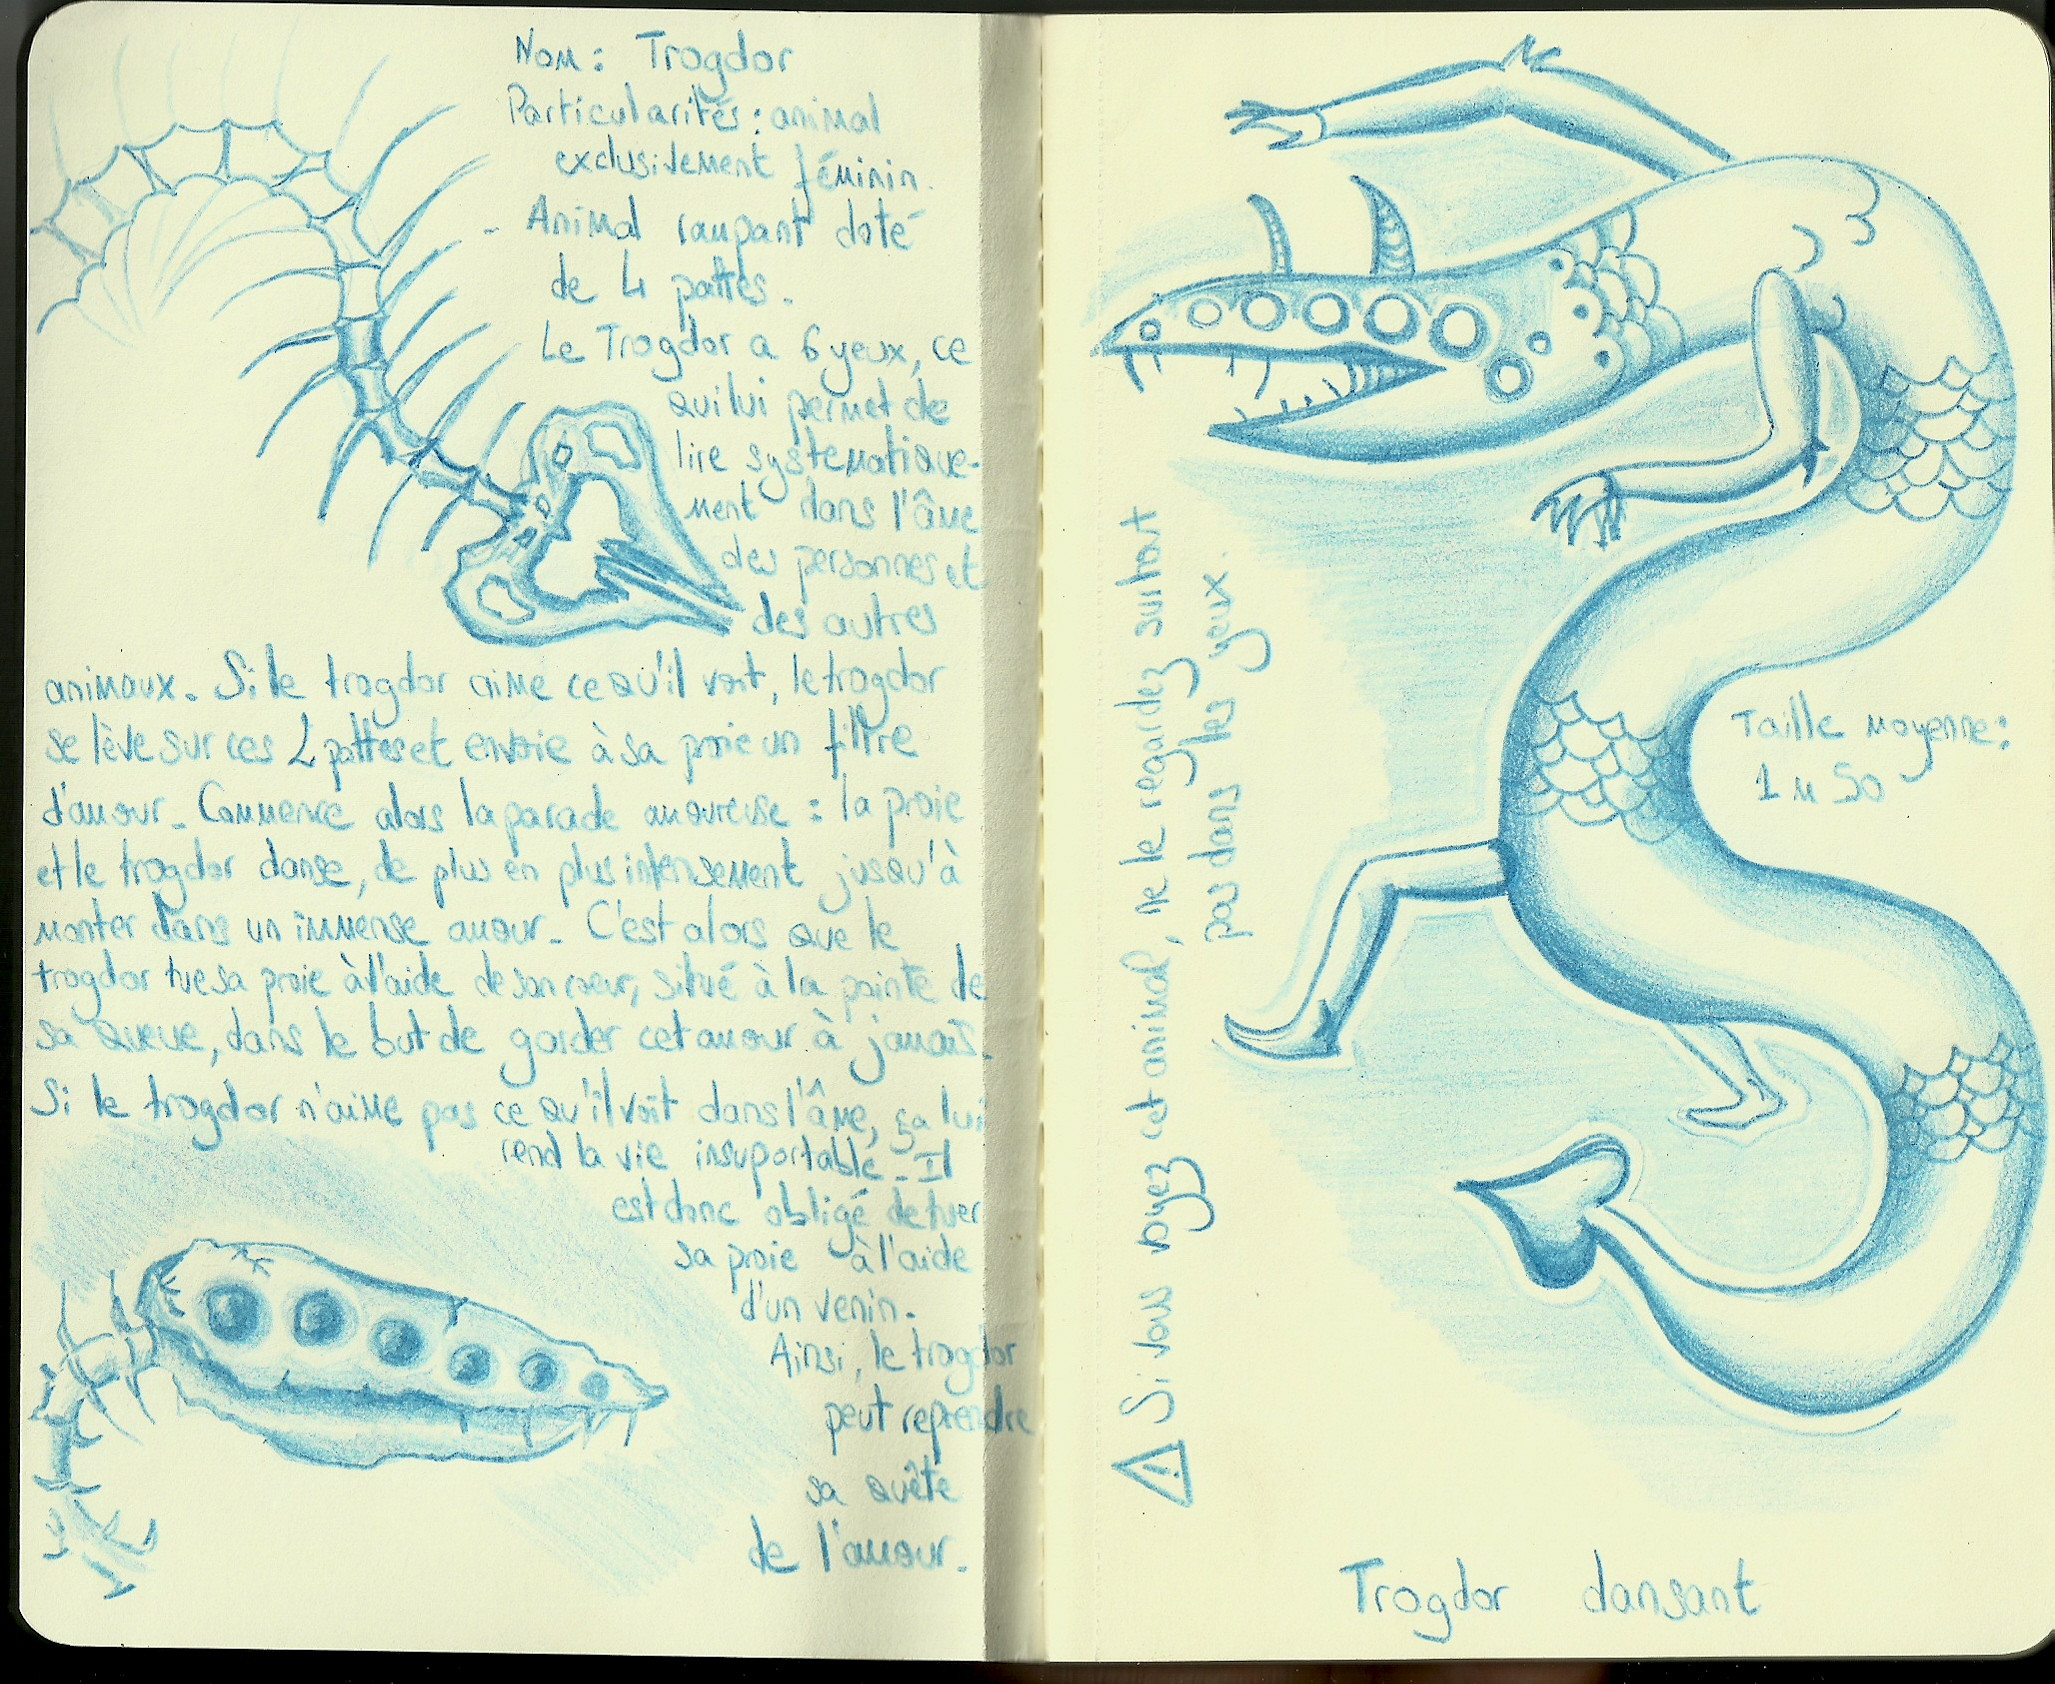 Nom : Trogdor
Particularités : animal
exclusivement féminin.
- Animal rampant doté
de 4 pattes.
Le Trogdor a 6 yeux, ce
qui lui permet de
lire systematique-
ment dans l'âme
des personnes et
des autres
animaux. Si le trogdor aime ce qu'il voit, le trogdor
se lève sur ces 2 pattes et envoie à sa proie un filtre
d'amour. Commence alors la parade amoureuse : la proie
et le trogdor danse, de plus en plus intensement jusqu'à
monter dans un immense amour. C'est alors que le
trogdor tue sa proie à l'aide de son coeur, situé à la pointe de
sa queue, dans le but de garder cet amour à jamais.
Si le trogdor n'aime pas ce qu'il voit dans l'âme, ça lui
rend la vie insuportable. Il
est donc obligé de tuer
sa proie à l'aide
d'un venin.
Ainsi, le trogdor
peut reprendre
sa quête
de l'amour.
⚠ Si vous voyez cet animal, ne le regardez surtout
pas dans les yeux.
Taille moyenne :
1 m 50
Trogdor dansant